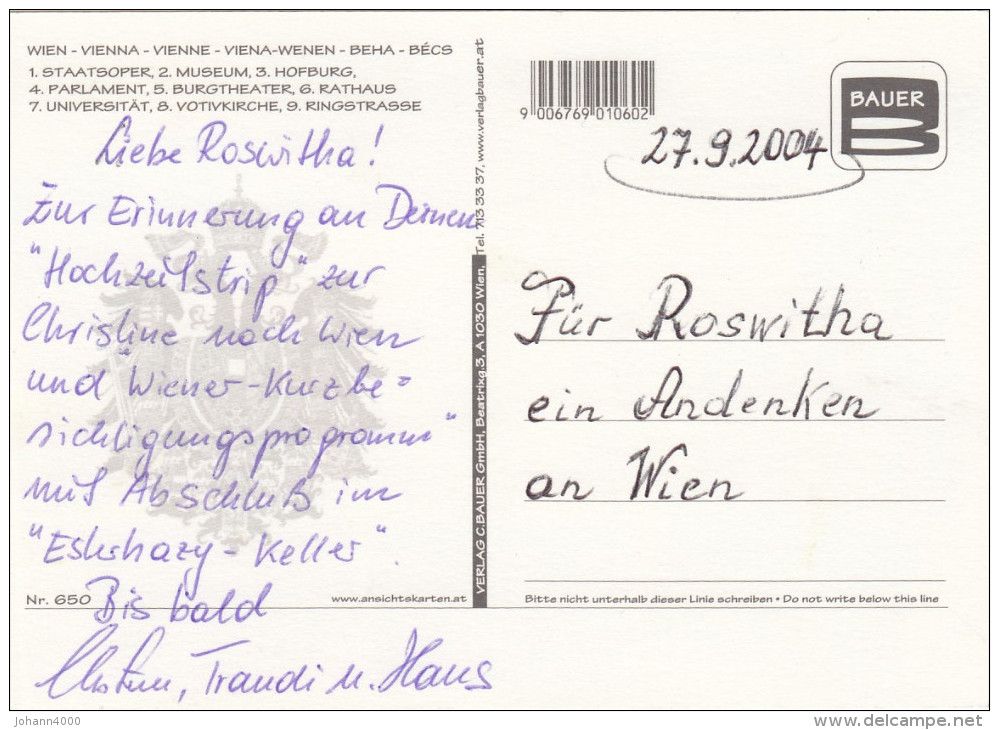 WIEN - VIENNA - VIENNE - VIENA-WENEN - BEHA - BÉCS
1. STAATSOPER, 2. MUSEUM, 3. HOFBURG,
4. PARLAMENT, 5. BURGTHEATER, 6. RATHAUS
7. UNIVERSITÄT, 8. VOTIVKIRCHE, 9. RINGSTRASSE
Liebe Roswitha!
Zur Erinnerung an Deinen
"Hochzeitstrip" zur
Christine nach Wien
und "Wiener-Kurzbe=
sichtigungsprogramm"
mit Abschluß im
"Esterhazy-Keller".
Bis bald
Traudi u. Hans
Nr. 650
www.ansichtskarten.at
VERLAG C.BAUER GmbH, Beatrixg.3, A 1030 Wien, Tel. 713 33 37, www.verlagbauer.at
9 006769 010602
BAUER
27.9.2004
Für Roswitha
ein Andenken
an Wien
Bitte nicht unterhalb dieser Linie schreiben • Do not write below this line
johann4000
delcampe.net